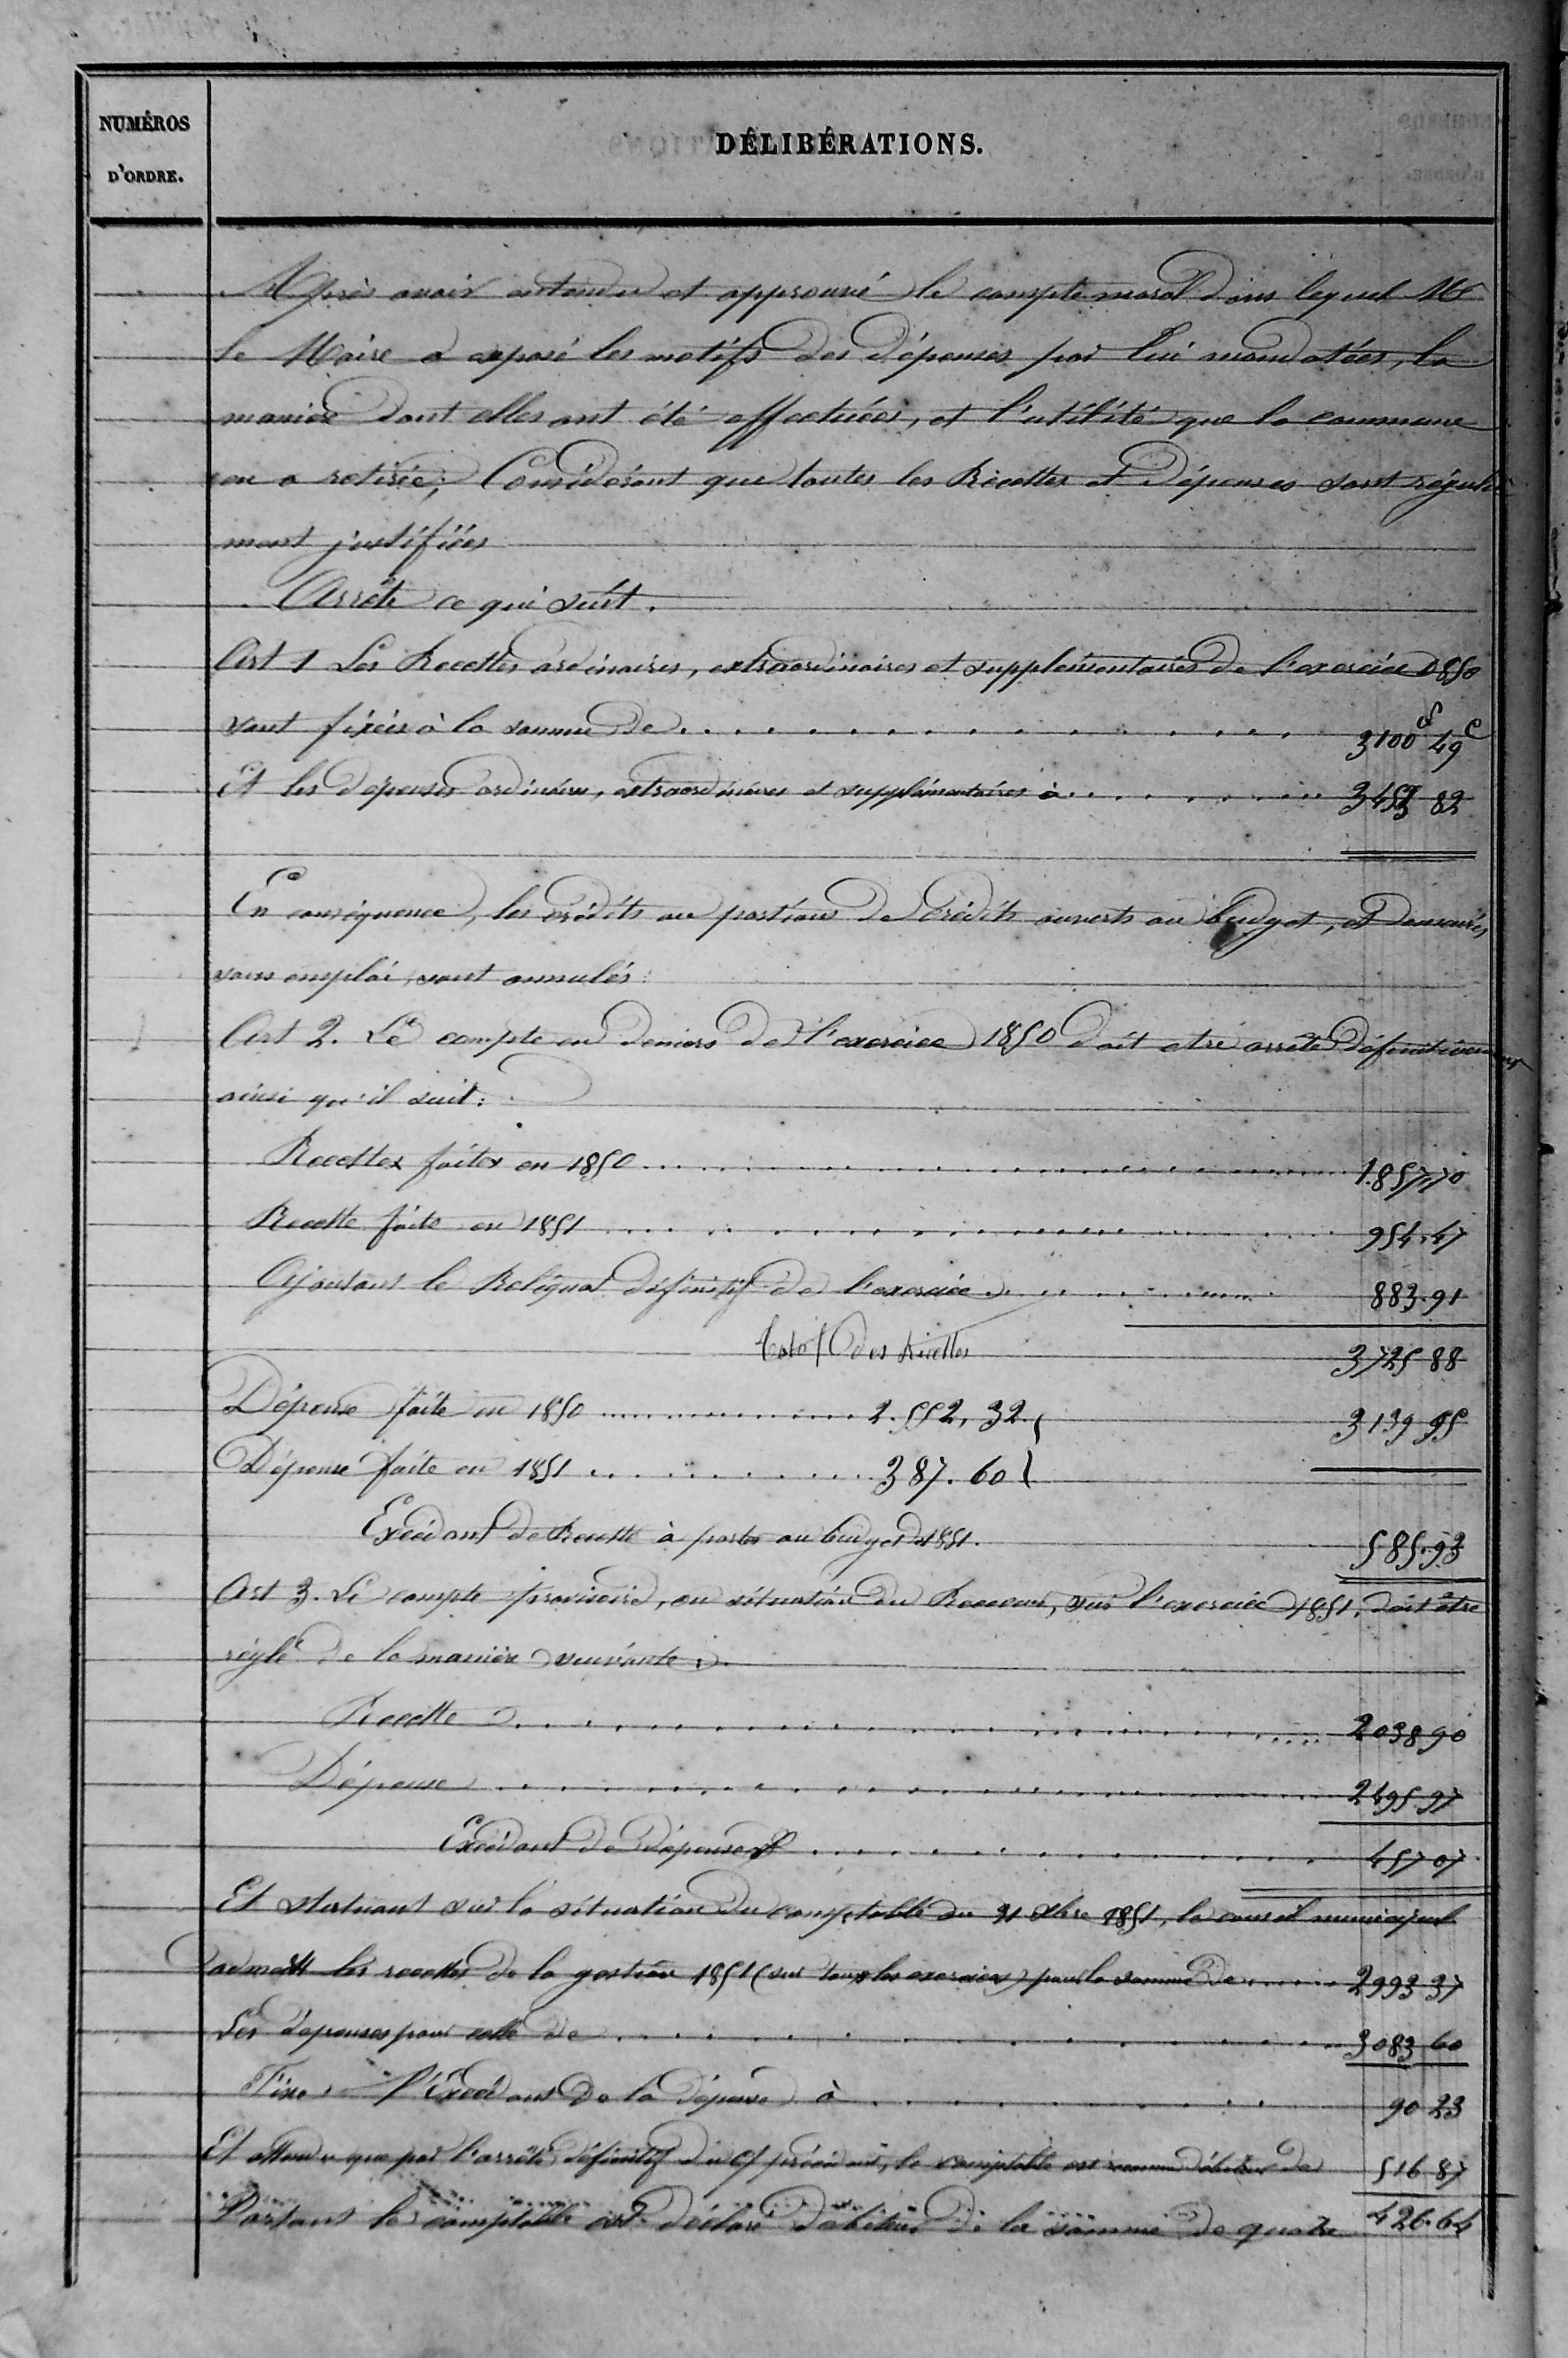 NUMÉROS
D'ORDRE.
DÉLIBÉRATIONS.
Après avoir entendu et approuvé le compte moral dans lequel Mr
le Maire a exposé les motifs des dépenses par lui mandatées, la
manière dont elles ont été effectuées, et l'utilité que la commune
en a retirée; Considérant que toutes les Recettes et Dépenses sont réguliè
ment justifiées
Arrête ce qui suit.
Art 1 Les Recettes ordinaires, extraordinaires et supplémentaires de l'exercice 1850
sont fixées à la somme de 3100f 49c
Et les dépenses ordinaires, extraordinaires et supplémentaires à 82
En conséquence, les crédits ou portions de crédits ouverts au budget, et demeurés
sans emploi, sont annulés:
Art 2. Le compte en deniers de l'exercice 1850 doit etre arrêté définitivement
ainsi qu'il suit:
Recettes faites en 1850 1.857,70
Recette faite en 1851 954.47
Ajoutant le Reliquat définitif de l'exercice 883.91
Total des Recettes 3725 88
Dépense faite en 1850 2.552,32
3139 95
Dépense faite en 1851 387.60
Excédant de Recette à porter au budget 1851. 585.93
Art 3. Le compte provisoire, ou situation du Receveur, sur l'exercice 1851, doit être
réglé de la manière suivante:
Recette 2038 90
Dépense 2495 97
Excédant de dépense 457 07
Et statuant sur la situation du comptable au 31 Xbre 1851, le conseil municipal
admet les recettes de la gestion 1851 (sur tous les exercices) pour la somme de 2993 37
Les dépenses pour celle de 3083 60
Fixe l'Excédant de la dépense à 90 23
Et attendu que par l'arrêté définitif du précédent, le comptable est reconnu débiteur de 516 87
Partant le comptable est déclaré débiteur de la somme de quatre 426.64